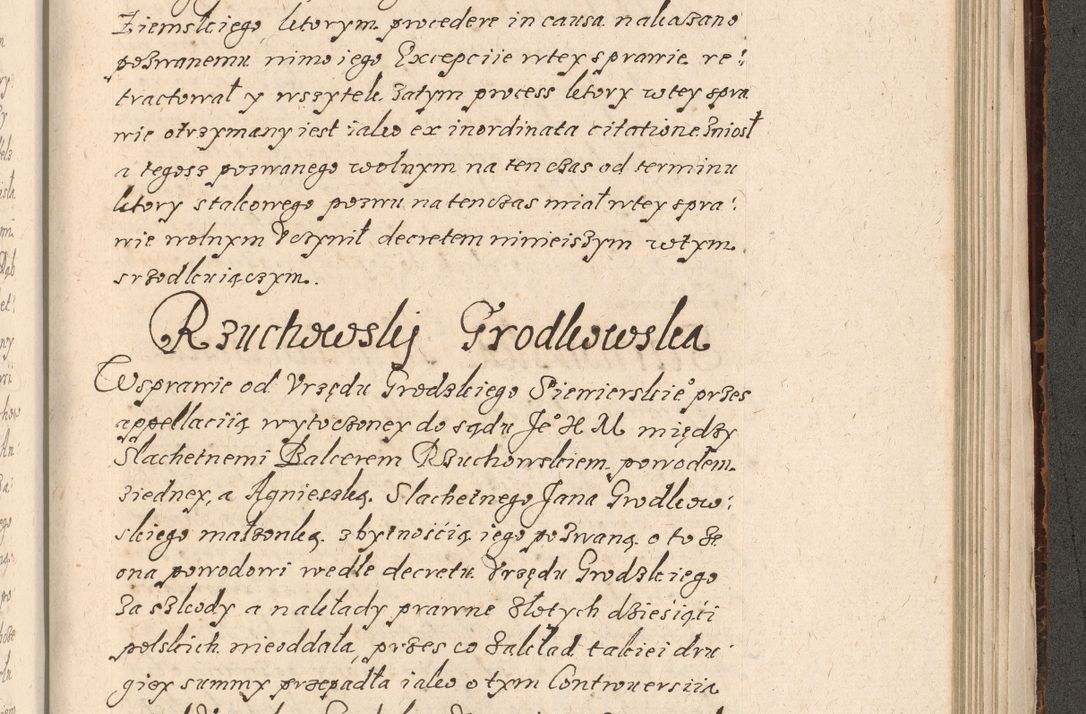 Ziemskiego ktorym procedere in causa nakazano
pozwanemu mimo iego Excepciie wtey sprawie re:
tractował y wszytek zatym process ktory w tey spra
wie otrzymany iest iako ex inordinata citatione zniosł
a tegosz pozwanego wolnym na ten czas od terminu
ktory z takowego pozwu na ten czas miał w tey spra:
wie wolnym Vczynił decretem ninieiszym w tym
srzodkuiączym.
Rzuchowskÿ Grodkowska
W sprawie od Vrzędu Grodzkiego Siewierskieo przes
appellaciią wytoczoney do sądu Jeo H M między
Slachetnemi Balcerem Rzuchowskiem powodem
ziedney, a Agnieszką Slachetnego Jana Grodkow:
skiego małzonką z bytnością iego pozwaną o to ze
ona powodowi wedle decretu Vrzędu Grodzkiego
za szkody a nakłady prawne złotych dziesiąci
polskich nieoddała, przes co zakład takiei dru
giey summy przepadła iako o tym Controuersiia